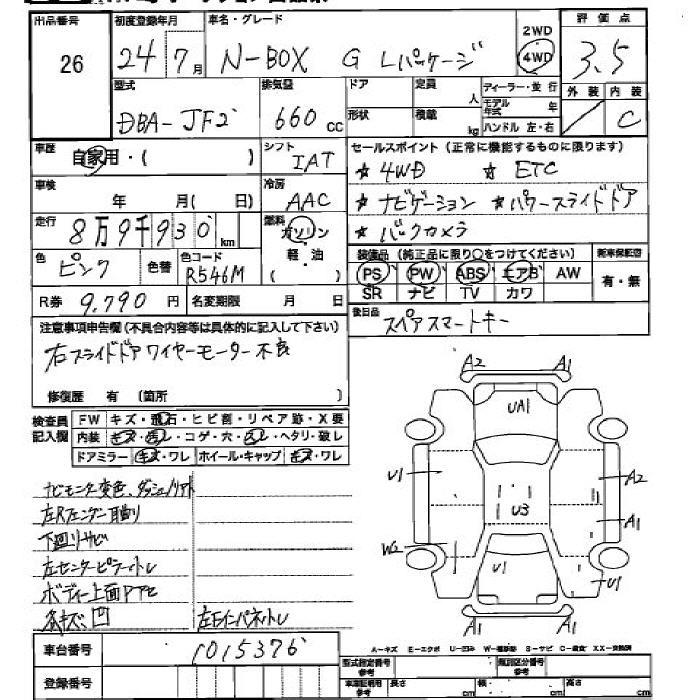 出品番号 初度登録年月 車名・グレード 評価点
26 24年 7月 N-BOX G Lパッケージ 2WD 4WD 3.5
型式 排気量 ドア 定員 人 ディーラー・並行 外装 内装
DBA-JF2 660cc 形状 積載 kg モデル年式 年 ハンドル 左・右 C
車歴 自家用・( ) シフト IAT セールスポイント (正常に機能するものに限ります)
★4WD ★ETC
車検 年 月( 日) 冷房 AAC ★ナビゲーション ★パワースライドドア
走行 8万9千930km 燃料 ガソリン ・ 軽・油 ★バックカメラ
装備品 (純正品に限り○をつけてください) 新車保証書
色 ピンク 色替 色コード R546M PS PW ABS エアB AW 有・無
SR ナビ TV カワ
R券 9,790円 名変期限 月 日 後日品 スペアスマートキー
注意事項申告欄(不具合内容等は具体的に記入して下さい)
右スライドドアワイヤーモーター不良
修復歴 有 (箇所 )
検査員記入欄 FW キズ・飛石・ヒビ割・リペア跡・X要
内装
ドアミラー キズ・ワレ ホイール・キャップ キズ・ワレ
ナビモニター変色、ダッシュノリアト
下回りサビ
左センターピラートレ
A2 A1
UA1
U1 A2
U3 A1
W2 U1 U1
A1 A1
A-キズ E-エクボ U-凹み S-サビ C-腐食 XX-交換済
車台番号 1015376 型式指定番号 参考 類別区分番号 参考
登録番号 車庫証明用 参考 長さ cm 幅 cm 高さ cm